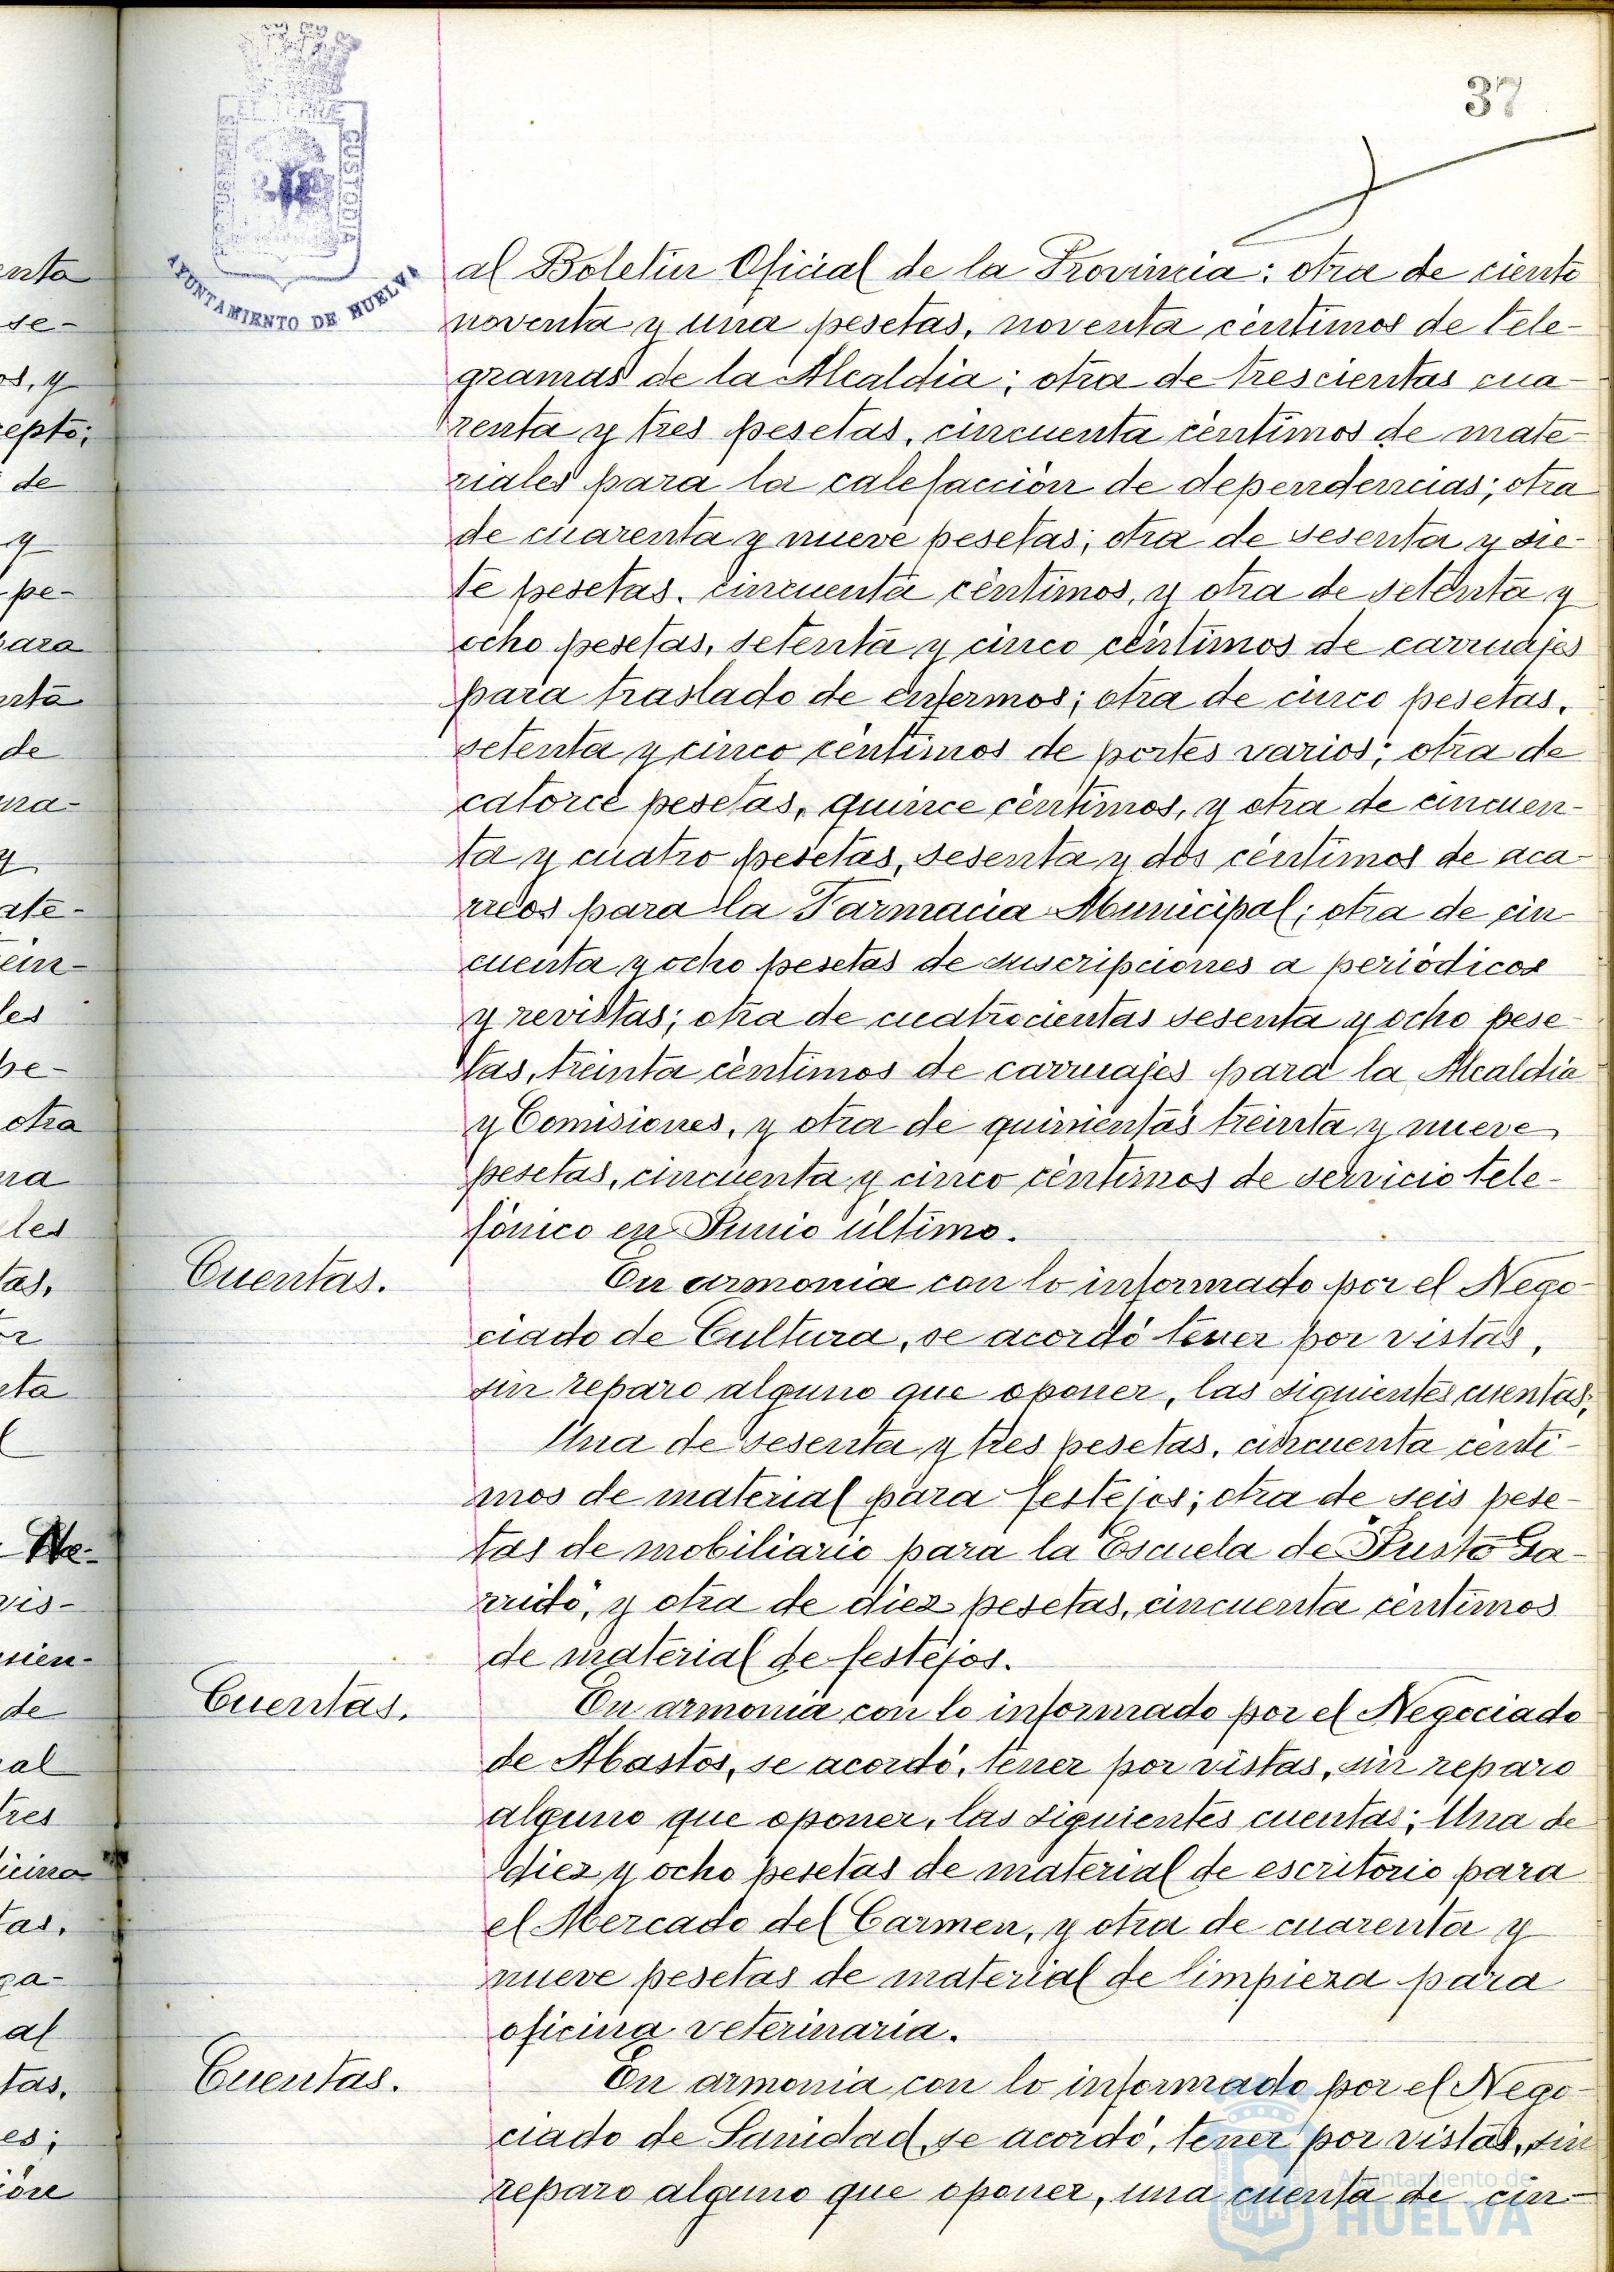 37
AYUNTAMIENTO DE HUELVA
al Boletin Oficial de la Provincia: otra de ciento
noventa y una pesetas, noventa céntimos de tele-
gramas de la Alcaldia; otra de trescientas cua-
renta y tres pesetas, cincuenta céntimos de mate-
riales para la calefacción de dependencias; otra
de cuarenta y nueve pesetas; otra de sesenta y sie-
te pesetas, cincuenta céntimos, y otra de setenta y
ocho pesetas, setenta y cinco céntimos de carruajes
para traslado de enfermos; otra de cinco pesetas,
setenta y cinco céntimos de portes varios; otra de
catorce pesetas, quince céntimos, y otra de cincuen-
ta y cuatro pesetas, sesenta y dos céntimos de aca-
rreos para la Farmacia Municipal; otra de cin-
cuenta y ocho pesetas de suscripciones a periódicos
y revistas; otra de cuatrocientas sesenta y ocho pese-
tas, treinta céntimos de carruajes para la Alcaldia
y Comisiones, y otra de quinientas treinta y nueve
pesetas, cincuenta y cinco céntimos de servicio tele-
fónico en Junio último.
Cuentas. En armonia con lo informado por el Nego-
ciado de Cultura, se acordó tener por vistas,
sin reparo alguno que oponer, las siguientes cuentas:
Una de sesenta y tres pesetas, cincuenta cénti-
mos de material para festejos; otra de seis pese-
tas de mobiliario para la Escuela de "Justo Ga-
rrido", y otra de diez pesetas, cincuenta céntimos
de material de festejos.
Cuentas. En armonia con lo informado por el Negociado
de Abastos, se acordó, tener por vistas, sin reparo
alguno que oponer, las siguientes cuentas: Una de
diez y ocho pesetas de material de escritorio para
el Mercado del Carmen, y otra de cuarenta y
nueve pesetas de material de limpieza para
oficina veterinaria.
Cuentas. En armonia con lo informado por el Nego-
ciado de Sanidad, se acordó, tener por vistas, sin
reparo alguno que oponer, una cuenta de cin-
Ayuntamiento de
HUELVA